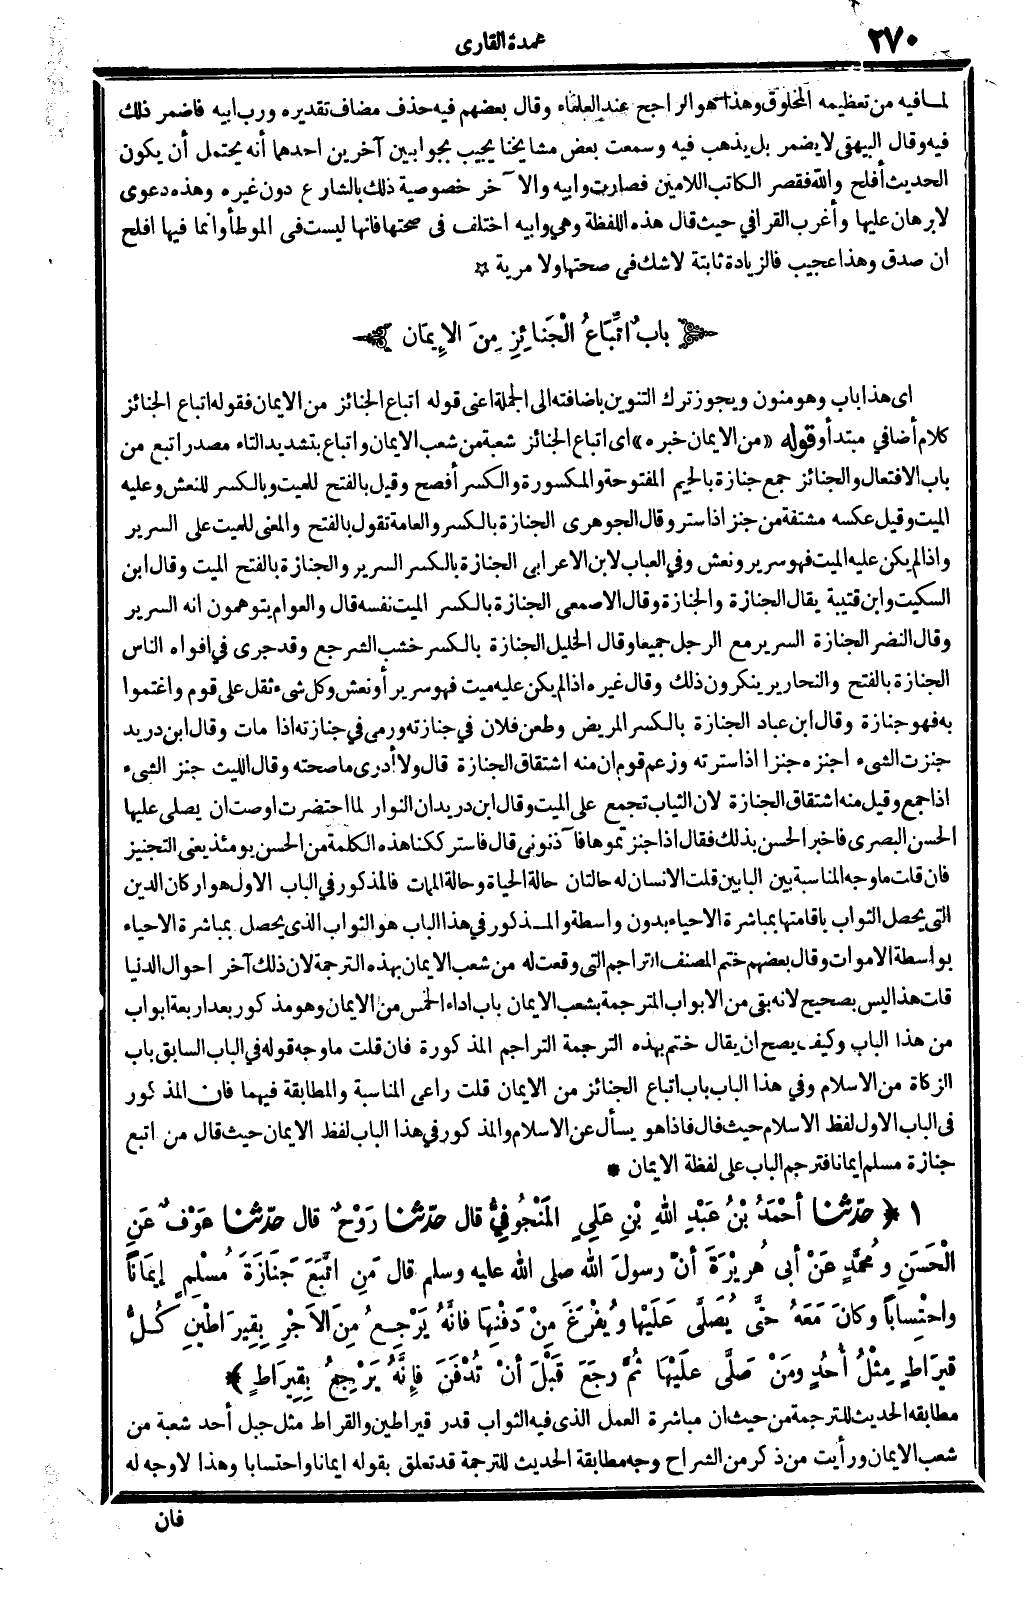 ٢٧٠
عمدة القارى
لمافيه من تعظيمه المخلوق وهذا هو الراجح عند العلماء وقال بعضهم فيه حذف مضاف تقديره ورب ابيه فاضمر ذلك
فيه وقال البيهقى لا يضمر بل يذهب فيه وسمعت بعض مشايخنا يجيب بجوابين آخرين احدهما أنه يحتمل أن يكون
الحديث أفلح والله فقصر الكاتب اللامين فصارت وابيه والآخر خصوصية ذلك بالشارع دون غيره وهذه دعوى
لا برهان عليها وأغرب القرافي حيث قال هذه اللفظة وهي وابيه اختلف فى صحتها فانها ليست فى الموطأ وانما فيها افلح
ان صدق وهذا عجيب فالزيادة ثابتة لا شك فى صحتها ولا مرية ✡
﴿ بابٌ اتِّبَاعُ الْجَنَائِزِ مِنَ الإِيمَان ﴾
اى هذا باب وهو منون ويجوز ترك التنوين باضافته الى الجملة اعنى قوله اتباع الجنائز من الايمان فقوله اتباع الجنائز
كلام أضافي مبتدأ وقوله «من الايمان خبره» اى اتباع الجنائز شعبة من شعب الايمان واتباع بتشديد التاء مصدر اتبع من
باب الافتعال والجنائز جمع جنازة بالجيم المفتوحة والمكسورة والكسر أفصح وقيل بالفتح للميت وبالكسر للنعش وعليه
الميت وقيل عكسه مشتقة من جنز اذا ستر وقال الجوهرى الجنازة بالكسر والعامة تقول بالفتح والمعنى للميت على السرير
واذا لم يكن عليه الميت فهو سرير ونعش وفي العباب لابن الاعرابى الجنازة بالكسر السرير والجنازة بالفتح الميت وقال ابن
السكيت وابن قتيبة يقال الجنازة والجنازة وقال الاصمعى الجنازة بالكسر الميت نفسه قال والعوام يتوهمون انه السرير
وقال النضر الجنازة السرير مع الرجل جميعا وقال الخليل الجنازة بالكسر خشب الشرجع وقد جرى في افواه الناس
الجنازة بالفتح والنحارير ينكرون ذلك وقال غيره اذا لم يكن عليه ميت فهو سرير أو نعش وكل شىء ثقل على قوم واغتموا
به فهو جنازة وقال ابن عباد الجنازة بالكسر المريض وطعن فلان في جنازته ورمى في جنازته اذا مات وقال ابن دريد
جنزت الشىء اجنزه جنزا اذا سترته وزعم قوم ان منه اشتقاق الجنازة قال ولا أدرى ما صحته وقال الليث جنز الشىء
اذا جمع وقيل منه اشتقاق الجنازة لان الثياب تجمع على الميت وقال ابن دريد ان النوار لما احتضرت اوصت ان يصلى عليها
الحسن البصرى فاخبر الحسن بذلك فقال اذا جنزتموها فآذنونى قال فاستركنا هذه الكلمة من الحسن يومئذ يعنى التجنيز
فان قلت ما وجه المناسبة بين البابين قلت الانسان له حالتان حالة الحياة وحالة الممات فالمذكور في الباب الاول هو اركان الدين
التى يحصل الثواب باقامتها بمباشرة الاحياء بدون واسطة والمـذكور في هذا الباب هو الثواب الذى يحصل بمباشرة الاحياء
بواسطة الاموات وقال بعضهم ختم المصنف التراجم التى وقعت له من شعب الايمان بهذه الترجمة لان ذلك آخر احوال الدنيا
قلت هذا ليس بصحيح لانه بقى من الابواب المترجمة بشعب الايمان باب اداء الخمس من الايمان وهو مذكور بعد اربعة ابواب
من هذا الباب وكيف يصح ان يقال ختم بهذه الترجمة التراجم المذكورة فان قلت ما وجه قوله في الباب السابق باب
الزكاة من الاسلام وفي هذا الباب باب اتباع الجنائز من الايمان قلت راعى المناسبة والمطابقة فيهما فان المذكور
فى الباب الاول لفظ الاسلام حيث قال فاذا هو يسأل عن الاسلام والمذكور في هذا الباب لفظ الايمان حيث قال من اتبع
جنازة مسلم ايمانا فترجم الباب على لفظة الايمان *
١ ﴿ حدّثنا أحْمَدُ بْنُ عَبْدِ اللهِ بْنِ عَلِيٍ المَنْجُوفِيُّ قال حدّثنا رَوْحٌ قال حدّثنا عَوْفٌ عَنِ
الْحَسَنِ ومُحَمَّدٍ عَنْ أبى هُرَيْرَةَ أنّ رسولَ الله صلى الله عليه وسلم قال مَنِ اتَّبَعَ جَنَازَةَ مُسْلِمٍ إيمَاناً
واحْتِساباً وكانَ مَعَهُ حتَّى يُصَلَّى عَلَيْها ويُفْرَغَ مِنْ دَفْنِهَا فانَّهُ يَرْجِعُ مِنَ الأجْرِ بِقِيرَاطَيْنِ كُلُّ
قِيرَاطٍ مِثْلُ أُحُدٍ ومَنْ صَلَّى عَلَيْهَا ثُمَّ رجَعَ قَبْلَ أنْ تُدْفَنَ فإنَّهُ يَرْجِعُ بِقِيرَاطٍ ﴾
مطابقة الحديث للترجمة من حيث ان مباشرة العمل الذى فيه الثواب قدر قيراطين والقراط مثل جبل أحد شعبة من
شعب الايمان ورأيت من ذكر من الشراح وجه مطابقة الحديث للترجمة قد تعلق بقوله ايمانا واحتسابا وهذا لا وجه له
فان